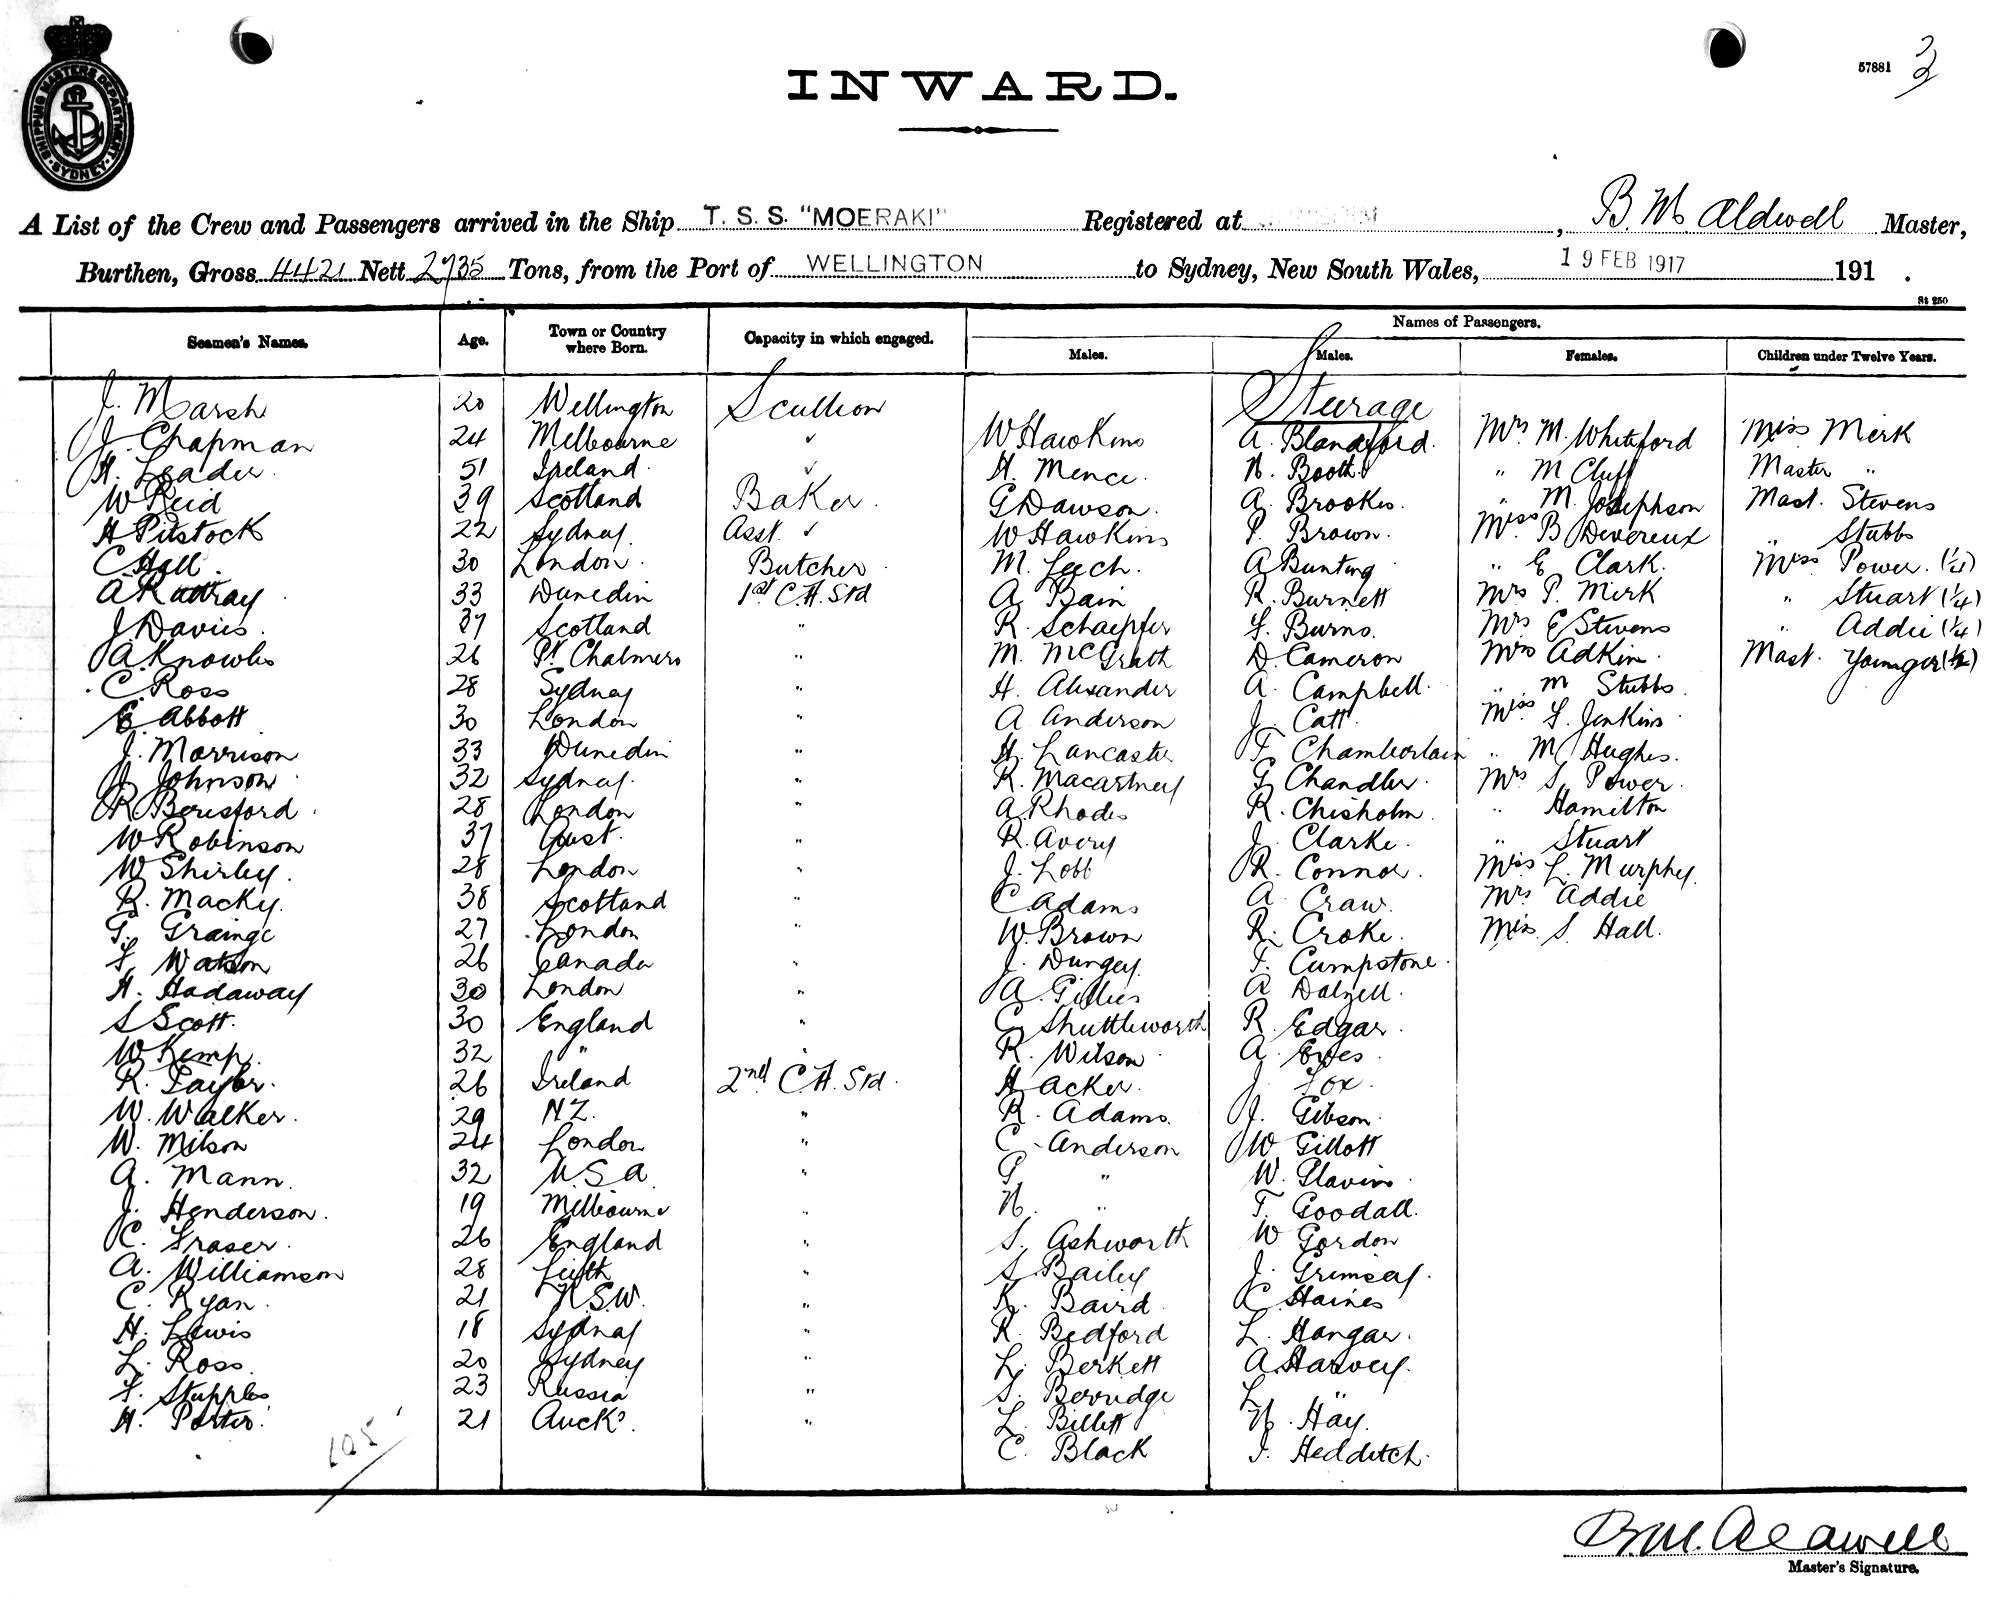 SHIPPING MASTERS DEPARTMENT · SYDNEY ·
57881 3
INWARD.
A List of the Crew and Passengers arrived in the Ship T. S. S. "MOERAKI" Registered at , B. M. Aldwell Master,
Burthen, Gross 4421 Nett 2735 Tons, from the Port of WELLINGTON to Sydney, New South Wales, 19 FEB 1917 191 .
St 250
Seamen's Names. Age. Town or Country where Born. Capacity in which engaged. Names of Passengers.
Males. Males. Females. Children under Twelve Years.
Steerage
J. Marsh 20 Wellington Scullion
J. Chapman 24 Melbourne ✓ W Hawkins A. Blandford. Mrs M. Whiteford Miss Merk
H. Leader. 51 Ireland. ✓ H. Mence. N. Booth. " M Cluff Master "
W Reid 39 Scotland Baker. G Dawson. A. Brookes. " M. Josephson Mast. Stevens
H Pitstock 22 Sydney. Asst. ✓ W Hawkins P. Brown. Miss B Devereux " Stubbs
C Hall. 30 London. Butcher M. Leech. A Bunting " E Clark. Miss Power. (1/4)
A Rattray 33 Dunedin 1st C.H. Std A Bain R. Burnett Mrs P. Merk " Stuart (1/4)
J Davies. 37 Scotland " R. Schaepfer F. Burns. Mrs E Stevens " Addie (1/4)
A. Knowles 26 Pt Chalmers " M. McGrath D. Cameron Miss Adkin. Mast. Younger (1/2)
C. Ross 28 Sydney " H. Alexander A. Campbell. " M Stubbs.
E Abbott 30 London " A Anderson J. Catt. Miss F. Jenkins
J. Morrison 33 Dunedin " H. Lancaster F. Chamberlain " M Hughes.
J. Johnson 32 Sydney. " R. Macartney G Chandler. Mrs S. Power.
R Beresford. 28 London " A. Rhodes R. Chisholm. " Hamilton
W Robinson 37 Gust. " R. Avery J. Clarke. " Stuart
W Shirley. 28 London " J. Lobb R. Connor. Miss L. Murphy.
R. Macky. 38 Scotland " C Adams A Craw. Mrs Addie
G. Grainge 27 London " W. Brown R. Croke. Miss. S. Hall.
F. Watson 26 Canada " J. Dungey. F. Cumpstone.
H. Hadaway 30 London " A. Gillies A Dalzell.
S Scott. 30 England " C. Shuttleworth R. Edgar.
W Kemp. 32 " " R. Wilson A. Eves.
R. Taylor. 26 Ireland 2nd C.H. Std. H Acker. J. Fox.
W. Walker. 29 N Z. " R. Adams. J. Gibson.
W. Milson 24 London " C. Anderson W Gillott
A. Mann. 32 U. S. A. " G " W. Glavin.
J. Henderson. 19 Melbourne " N. " T. Goodall.
C. Fraser. 26 England " S. Ashworth W Gordon
A. Williamson 28 Leith " S. Bailey J. Grimsey.
C. Ryan. 21 N.S.W. " R. Baird C. Haines
H. Lewis 18 Sydney " R. Bedford L. Hangar.
L. Ross. 20 Sydney " L. Berkett A. Harvey.
F. Stupples 23 Russia " S. Berridge L. "
H. Porter. 21 Auckd. " L. Billett N. Hay.
105 C. Black F. Hedditch.
B. M. Aldwell
Master's Signature.